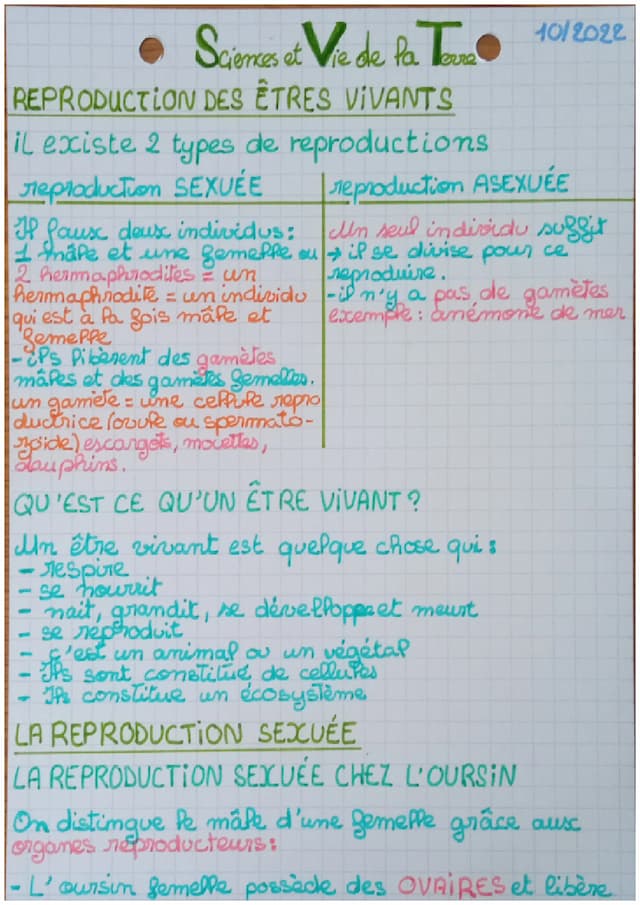 Sciences et Vie de la Terre
10/2022
REPRODUCTION DES ÊTRES ViVANTS
iL existe 2 types de reproductions
reproduction SEXUÉE
Il faux deux individus:
1 mâle et une femelle ou
2 hermaphrodites = un
hermaphrodite = un individu
qui est à la fois mâle et
femelle
- ils libèrent des gamètes
mâles et des gamètes femelles.
un gamète = une cellule repro
ductrice (ovule ou spermato-
zoïde) escargots, mouettes,
dauphins.
reproduction ASEXUÉE
Un seul individu suffit
→ il se divise pour ce
reproduire.
- il n'y a pas de gamètes
exemple : anémone de mer
QU'EST CE QU'UN ÊTRE ViVANT ?
Un être vivant est quelque chose qui :
- respire
- se nourrit
- nait, grandit, se développe et meurt
- se reproduit
- c'est un animal ou un végétal
- Ils sont constitué de cellules
- Ils constitue un écosystème
LA REPRODUCTiON SEXUÉE
LA REPRODUCTiON SEXUÉE CHEZ L'OURSiN
On distingue le mâle d'une femelle grâce aux
organes réproducteurs :
- L'oursin femelle possède des OVAiRES et libère